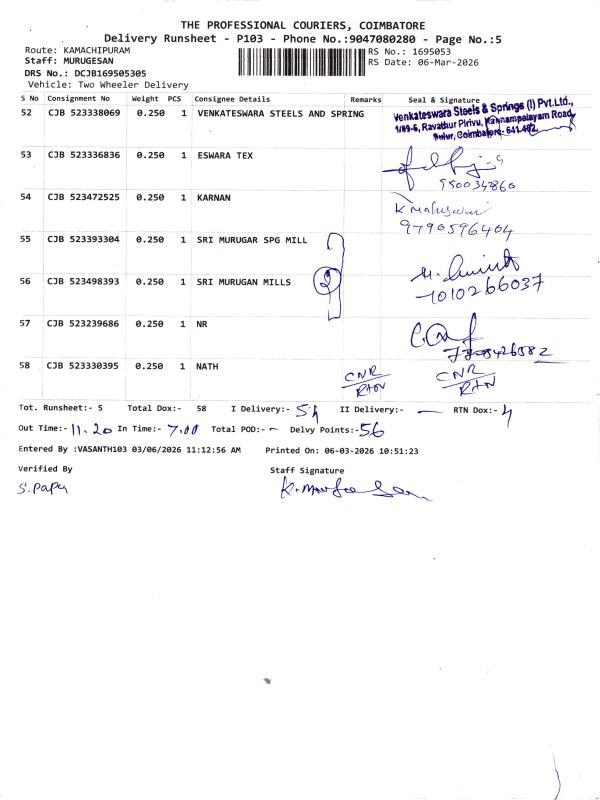 THE PROFESSIONAL COURIERS, COIMBATORE
Delivery Runsheet - P103 - Phone No.:9047080280 - Page No.:5
Route: KAMACHIPURAM RS No.: 1695053
Staff: MURUGESAN RS Date: 06-Mar-2026
DRS No.: DCJB169505305
Vehicle: Two Wheeler Delivery
S No Consignment No Weight PCS Consignee Details Remarks Seal & Signature
52 CJB 523338069 0.250 1 VENKATESWARA STEELS AND SPRING
Venkateswara Steels & Springs (I) Pvt.Ltd.,
1/89-6, Ravathur Pirivu, Kannampalayam Road,
Sulur, Coimbatore- 641 402.
53 CJB 523336836 0.250 1 ESWARA TEX
9500347860
54 CJB 523472525 0.250 1 KARNAN K Maheswari
9790596404
55 CJB 523393304 0.250 1 SRI MURUGAR SPG MILL
56 CJB 523498393 0.250 1 SRI MURUGAN MILLS 2
1010266037
57 CJB 523239686 0.250 1 NR
58 CJB 523330395 0.250 1 NATH CNR CNR
RTN RTN
Tot. Runsheet:- 5 Total Dox:- 58 I Delivery:- 54 II Delivery:- — RTN Dox:- 4
Out Time:- 11.20 In Time:- 7.00 Total POD:- - Delvy Points:- 56
Entered By :VASANTH103 03/06/2026 11:12:56 AM Printed On: 06-03-2026 10:51:23
Verified By Staff Signature
S. Papu